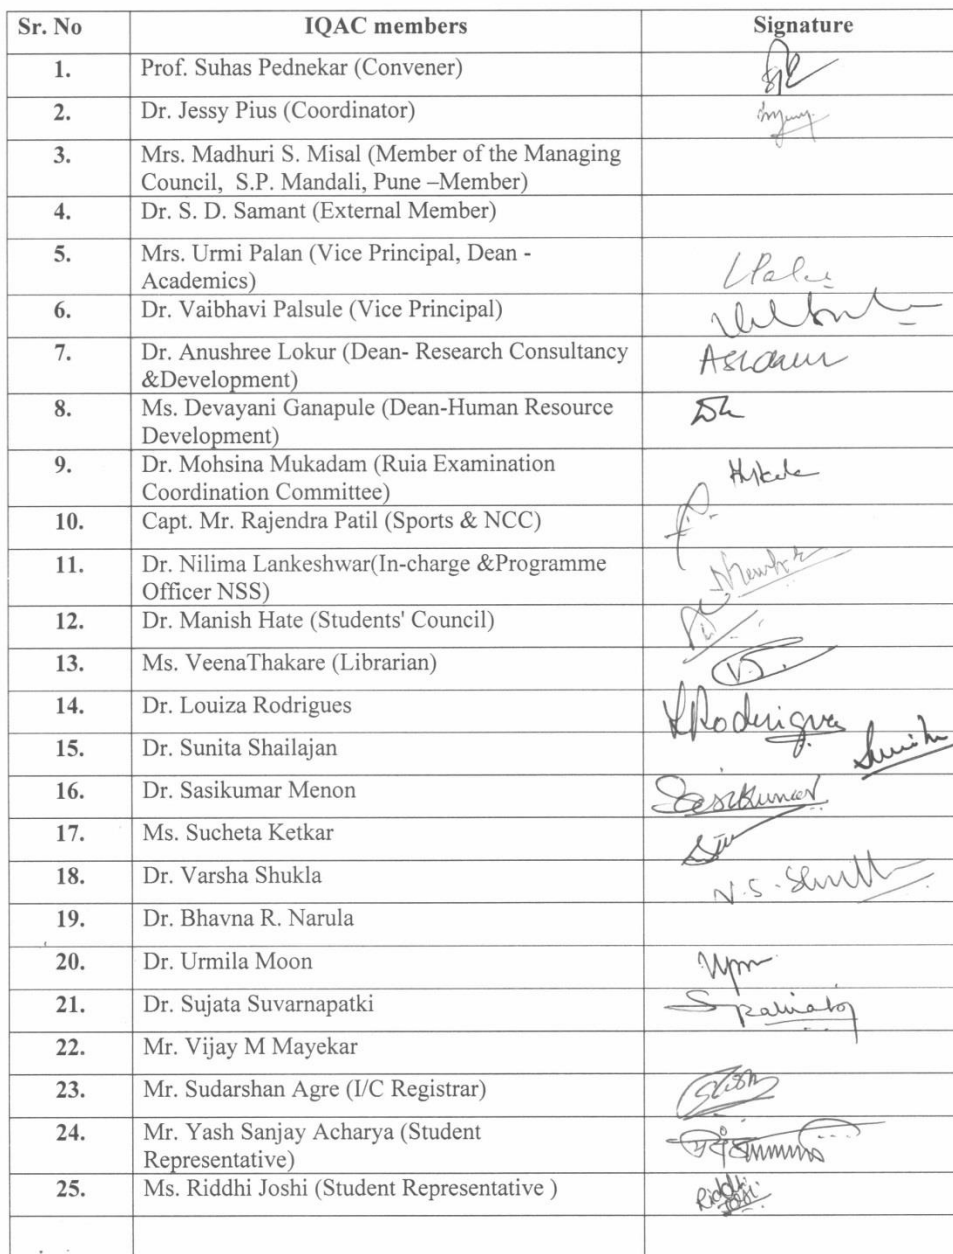 Sr. No IQAC members Signature
1. Prof. Suhas Pednekar (Convener)
2. Dr. Jessy Pius (Coordinator)
3. Mrs. Madhuri S. Misal (Member of the Managing
Council, S.P. Mandali, Pune –Member)
4. Dr. S. D. Samant (External Member)
5. Mrs. Urmi Palan (Vice Principal, Dean -
Academics)
6. Dr. Vaibhavi Palsule (Vice Principal)
7. Dr. Anushree Lokur (Dean- Research Consultancy
&Development)
8. Ms. Devayani Ganapule (Dean-Human Resource
Development)
9. Dr. Mohsina Mukadam (Ruia Examination
Coordination Committee)
10. Capt. Mr. Rajendra Patil (Sports & NCC)
11. Dr. Nilima Lankeshwar(In-charge &Programme
Officer NSS)
12. Dr. Manish Hate (Students' Council)
13. Ms. VeenaThakare (Librarian)
14. Dr. Louiza Rodrigues LRodrigues
15. Dr. Sunita Shailajan
16. Dr. Sasikumar Menon Sasikumar
17. Ms. Sucheta Ketkar
18. Dr. Varsha Shukla
19. Dr. Bhavna R. Narula
20. Dr. Urmila Moon
21. Dr. Sujata Suvarnapatki
22. Mr. Vijay M Mayekar
23. Mr. Sudarshan Agre (I/C Registrar)
24. Mr. Yash Sanjay Acharya (Student
Representative)
25. Ms. Riddhi Joshi (Student Representative ) Riddhi
Joshi